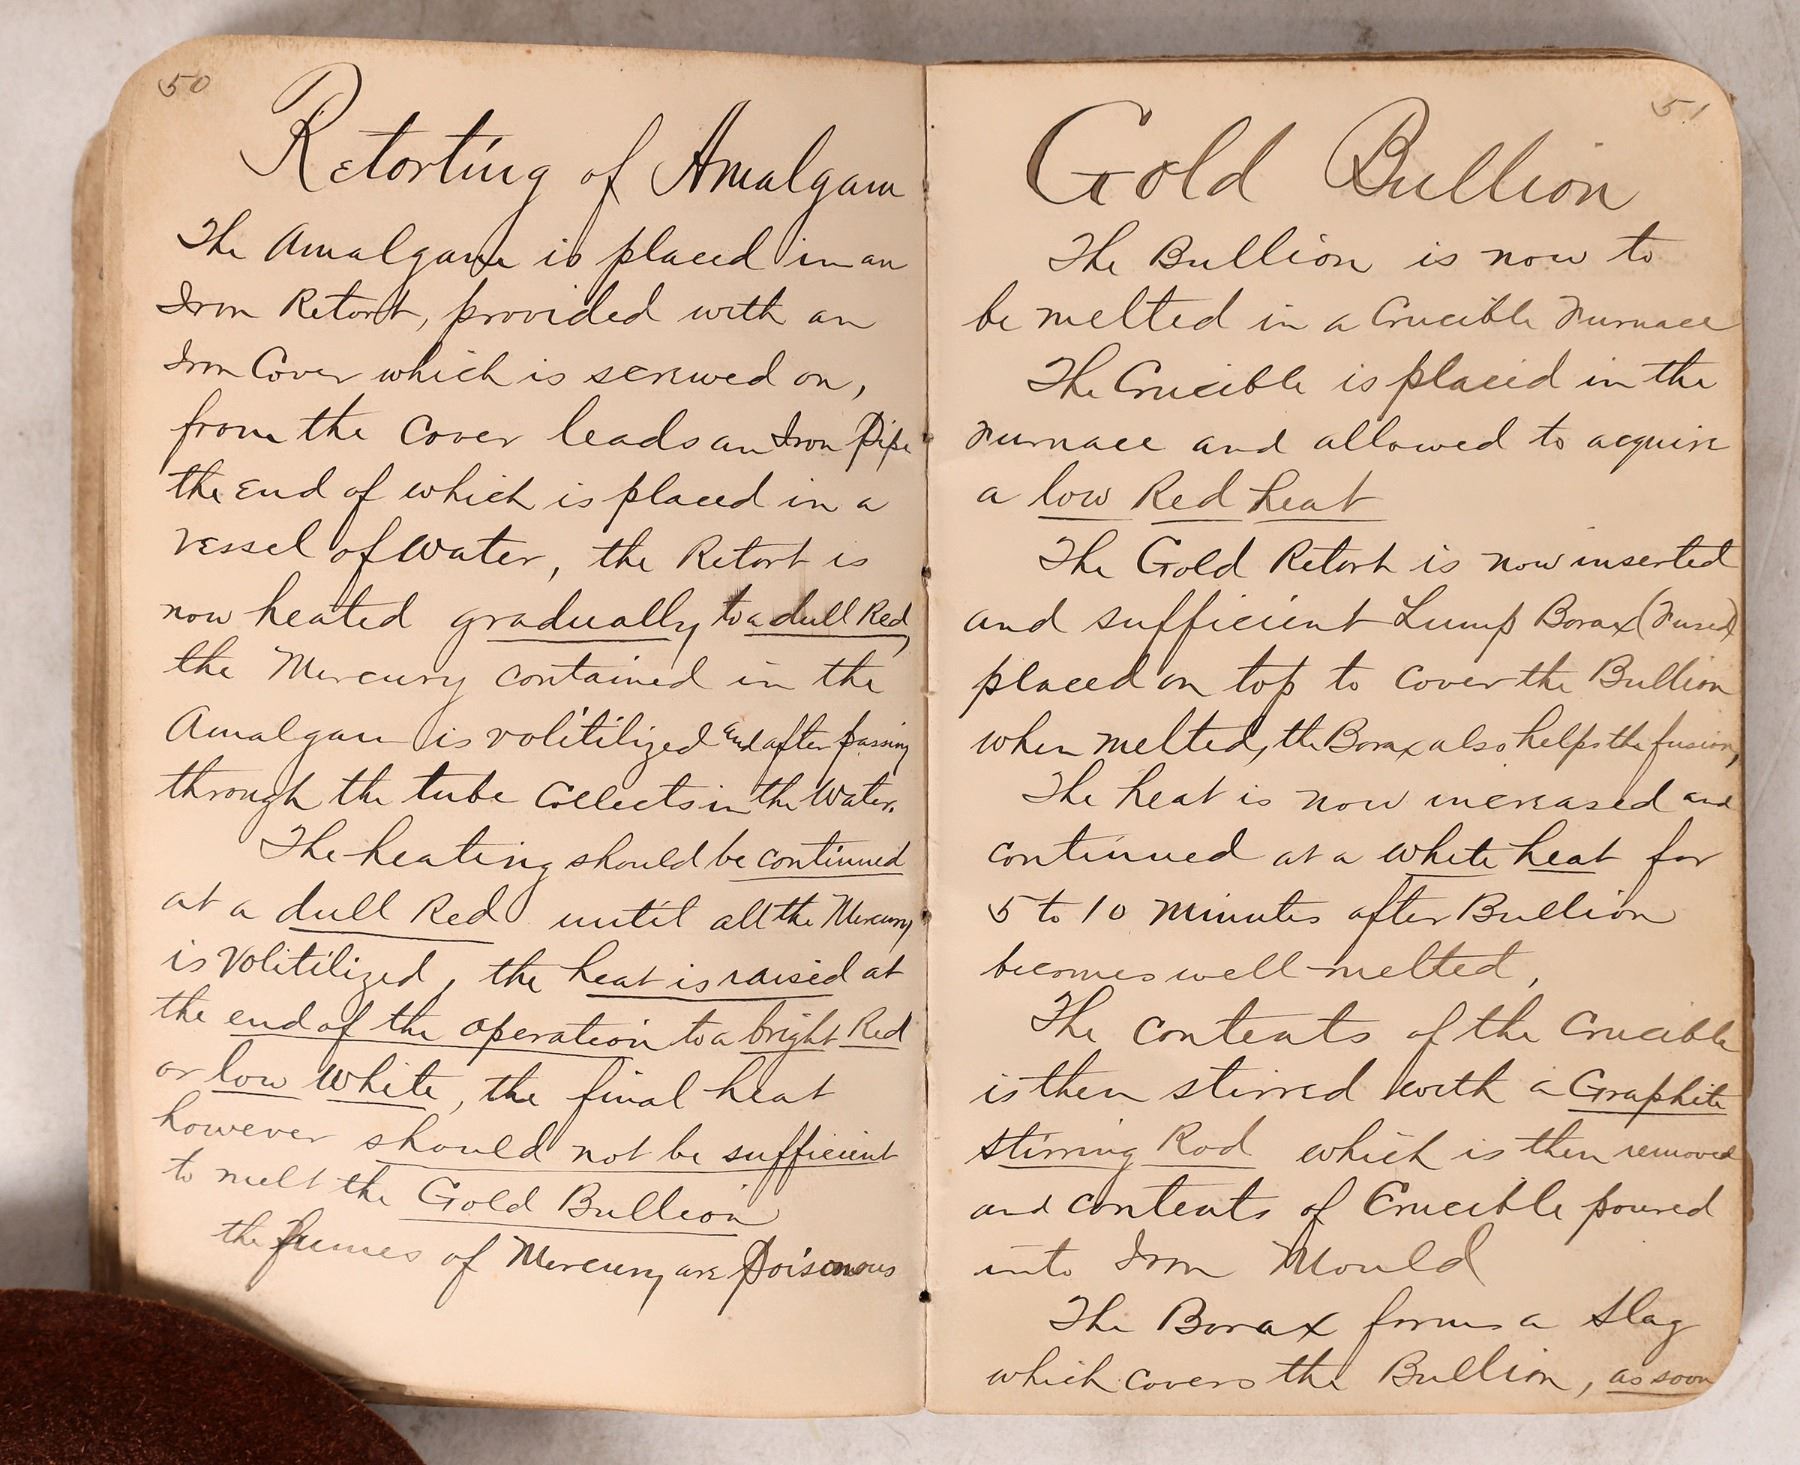 50
Retorting of Amalgam
The Amalgam is placed in an
Iron Retort, provided with an
Iron Cover which is screwed on,
from the Cover leads an Iron Pipe
the End of which is placed in a
vessel of Water, the Retort is
now heated gradually to a dull Red,
the Mercury contained in the
Amalgam is volitilized and after passing
through the tube Collects in the Water.
The heating should be continued
at a dull Red until all the Mercury
is Volitilized, the heat is raised at
the end of the operation to a bright Red
or low white, the final heat
however should not be sufficient
to melt the Gold Bullion
the fumes of Mercury are Poisonous
51
Gold Bullion
The Bullion is now to
be melted in a Crucible Furnace
The Crucible is placed in the
Furnace and allowed to acquire
a low Red heat
The Gold Retort is now inserted
and sufficient Lump Borax (Fused)
placed on top to cover the Bullion
when melted, the Borax also helps the fusion,
The heat is now increased and
continued at a white heat for
5 to 10 minutes after Bullion
becomes well melted,
The contents of the Crucible
is then stirred with a Graphite
stirring Rod which is then removed
and contents of Crucible poured
into Iron Mould
The Borax forms a Slag
which covers the Bullion, as soon